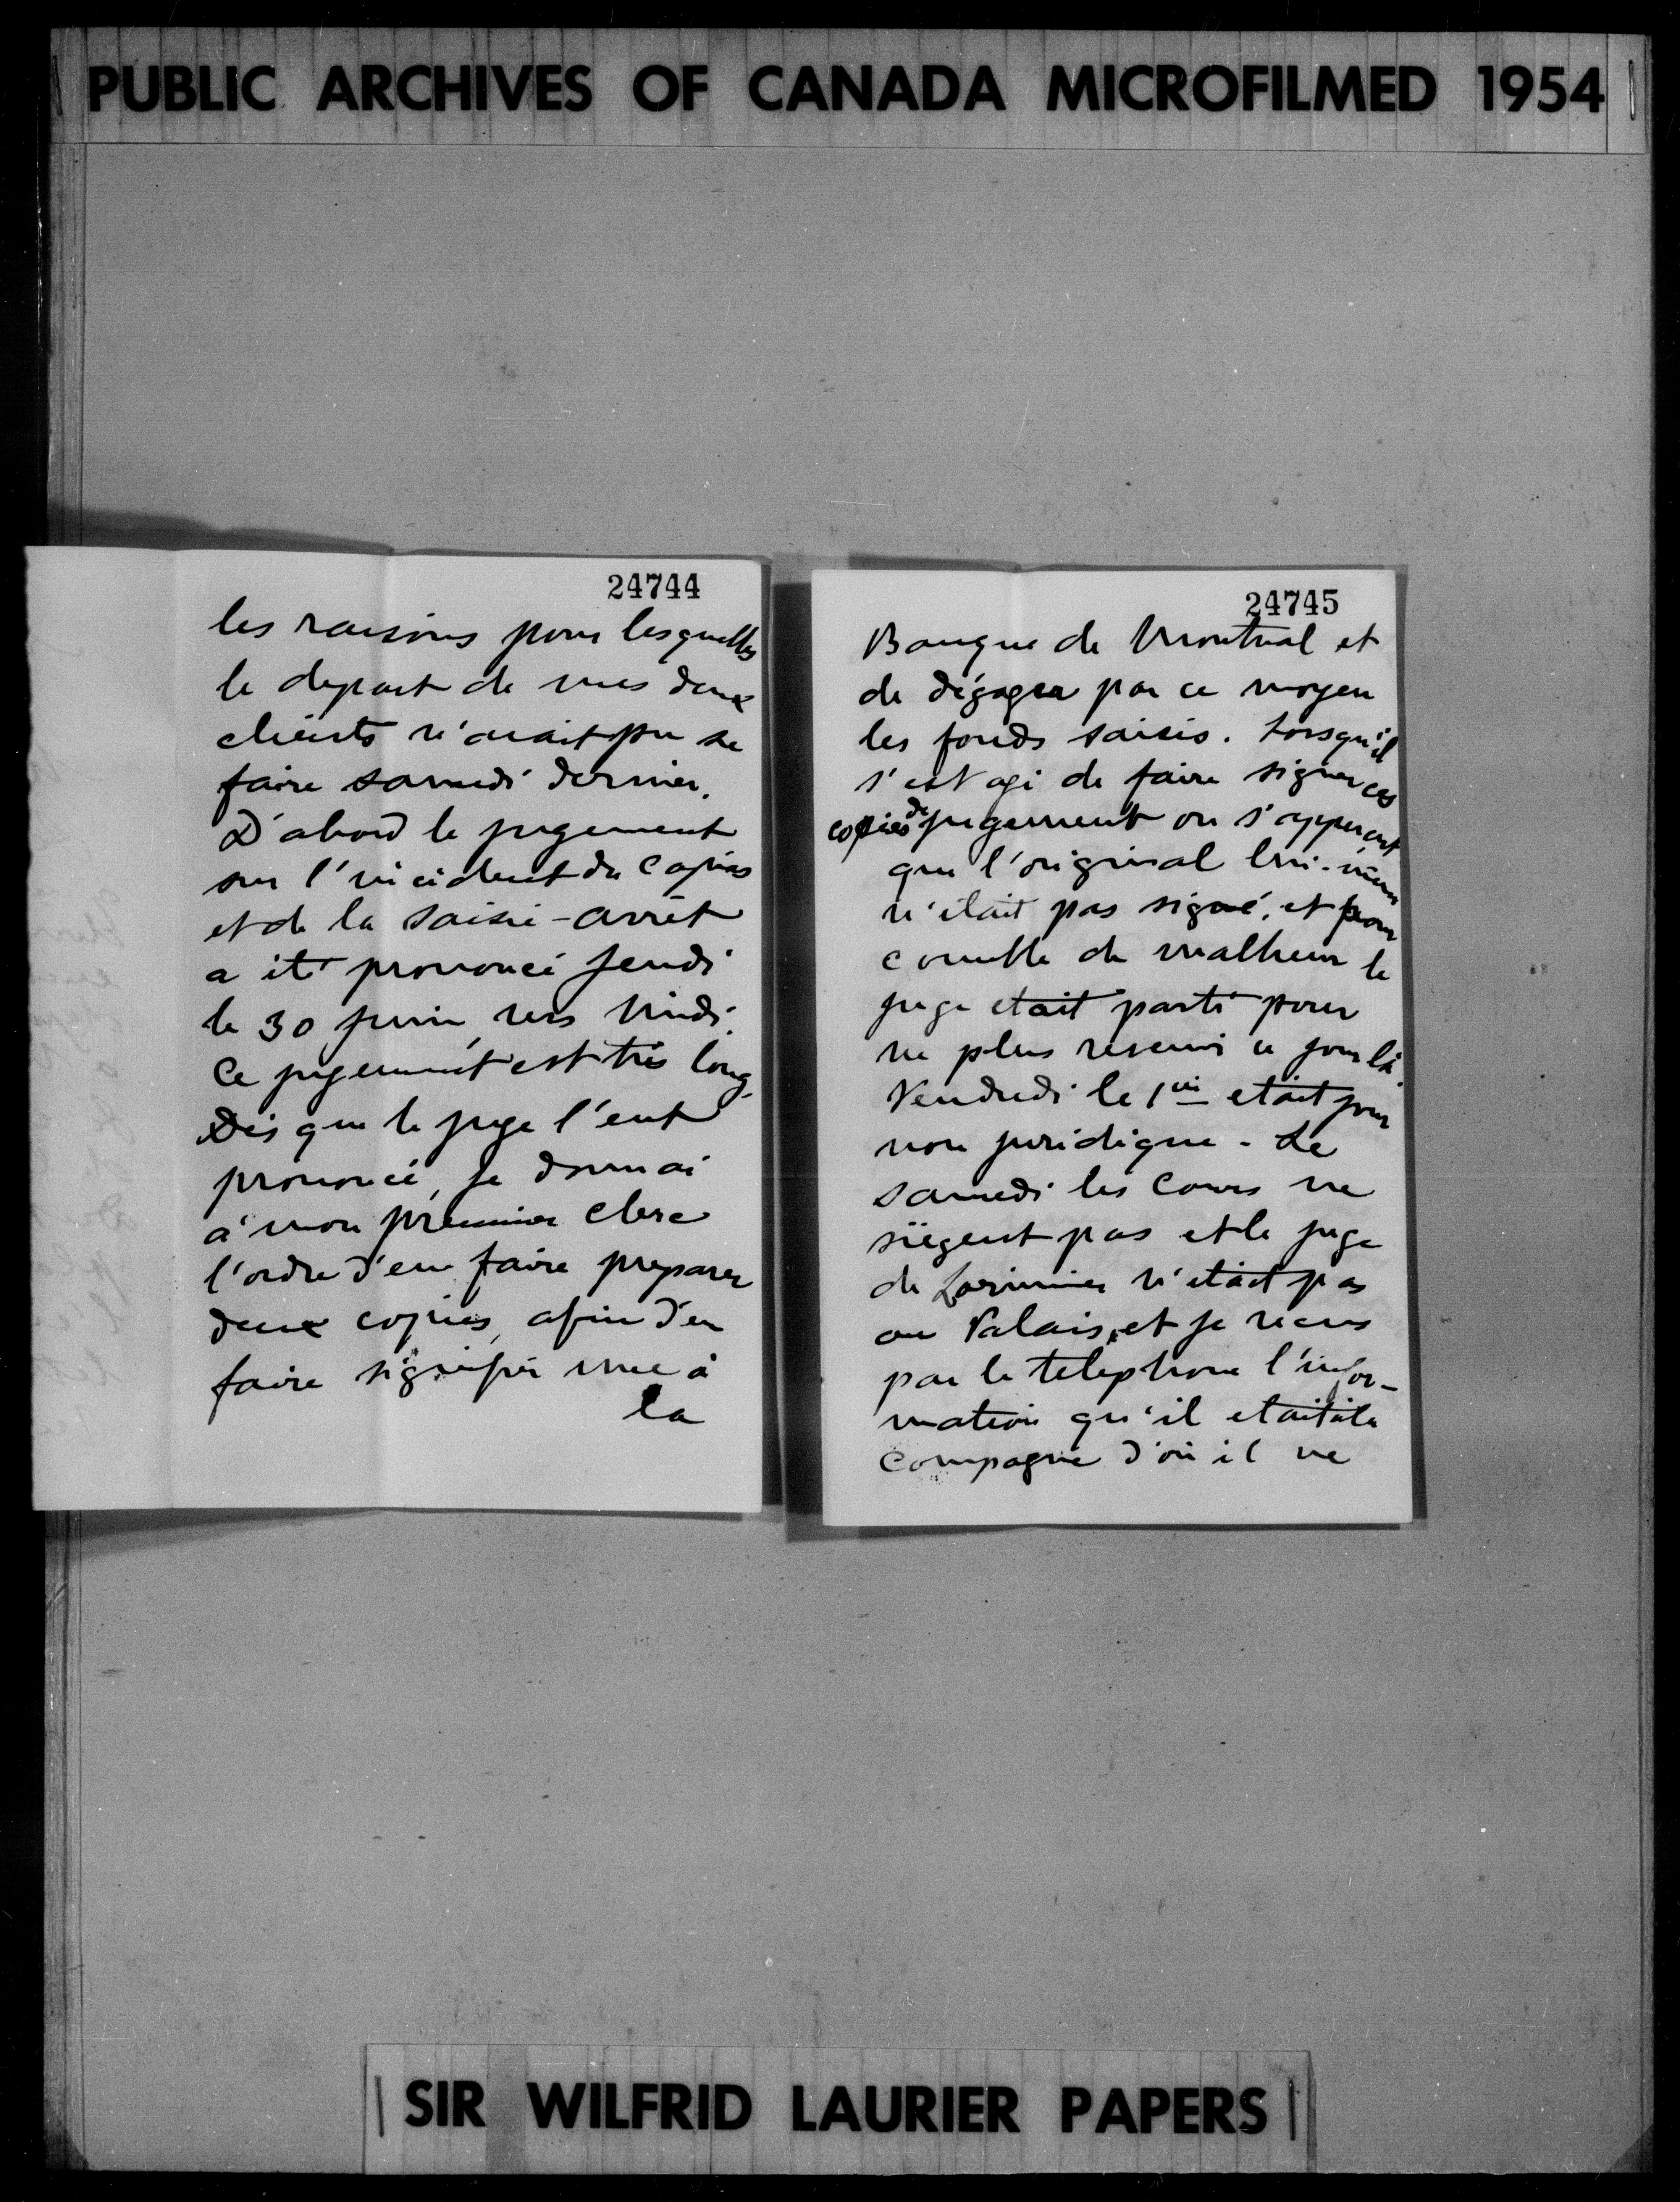 PUBLIC ARCHIVES OF CANADA MICROFILMED 1954
24744
les raisons pour lesquelles
le depart de mes deux
clients n'avait pu se
faire samedi dernier.
D'abord le jugement
sur l'incident du Capias
et de la saisie-arrêt
a été prononcé Jeudi
le 30 juin, vers Midi.
Ce jugement est très long.
Dès que le juge l'eut
prononcé, je donnai
à mon premier clerc
l'ordre d'en faire preparer
deux copies, afin d'en
faire signifier une à
la
24745
Banque de Montreal et
de dégager par ce moyen
les fonds saisis. Lorsqu'il
s'est agi de faire signer ces
copies de jugement on s'apperçut
que l'original lui-même
n'était pas signé, et pour
comble de malheur le
juge etait parti pour
ne plus revenir ce jour là.
Vendredi le 1er etait jour
non juridique. Le
samedi les Cours ne
siègent pas et le juge
de Lorimier n'etait pas
au Palais, et je recus
par le telephone l'infor-
mation qu'il etait à la
Campagne d'où il ne
SIR WILFRID LAURIER PAPERS